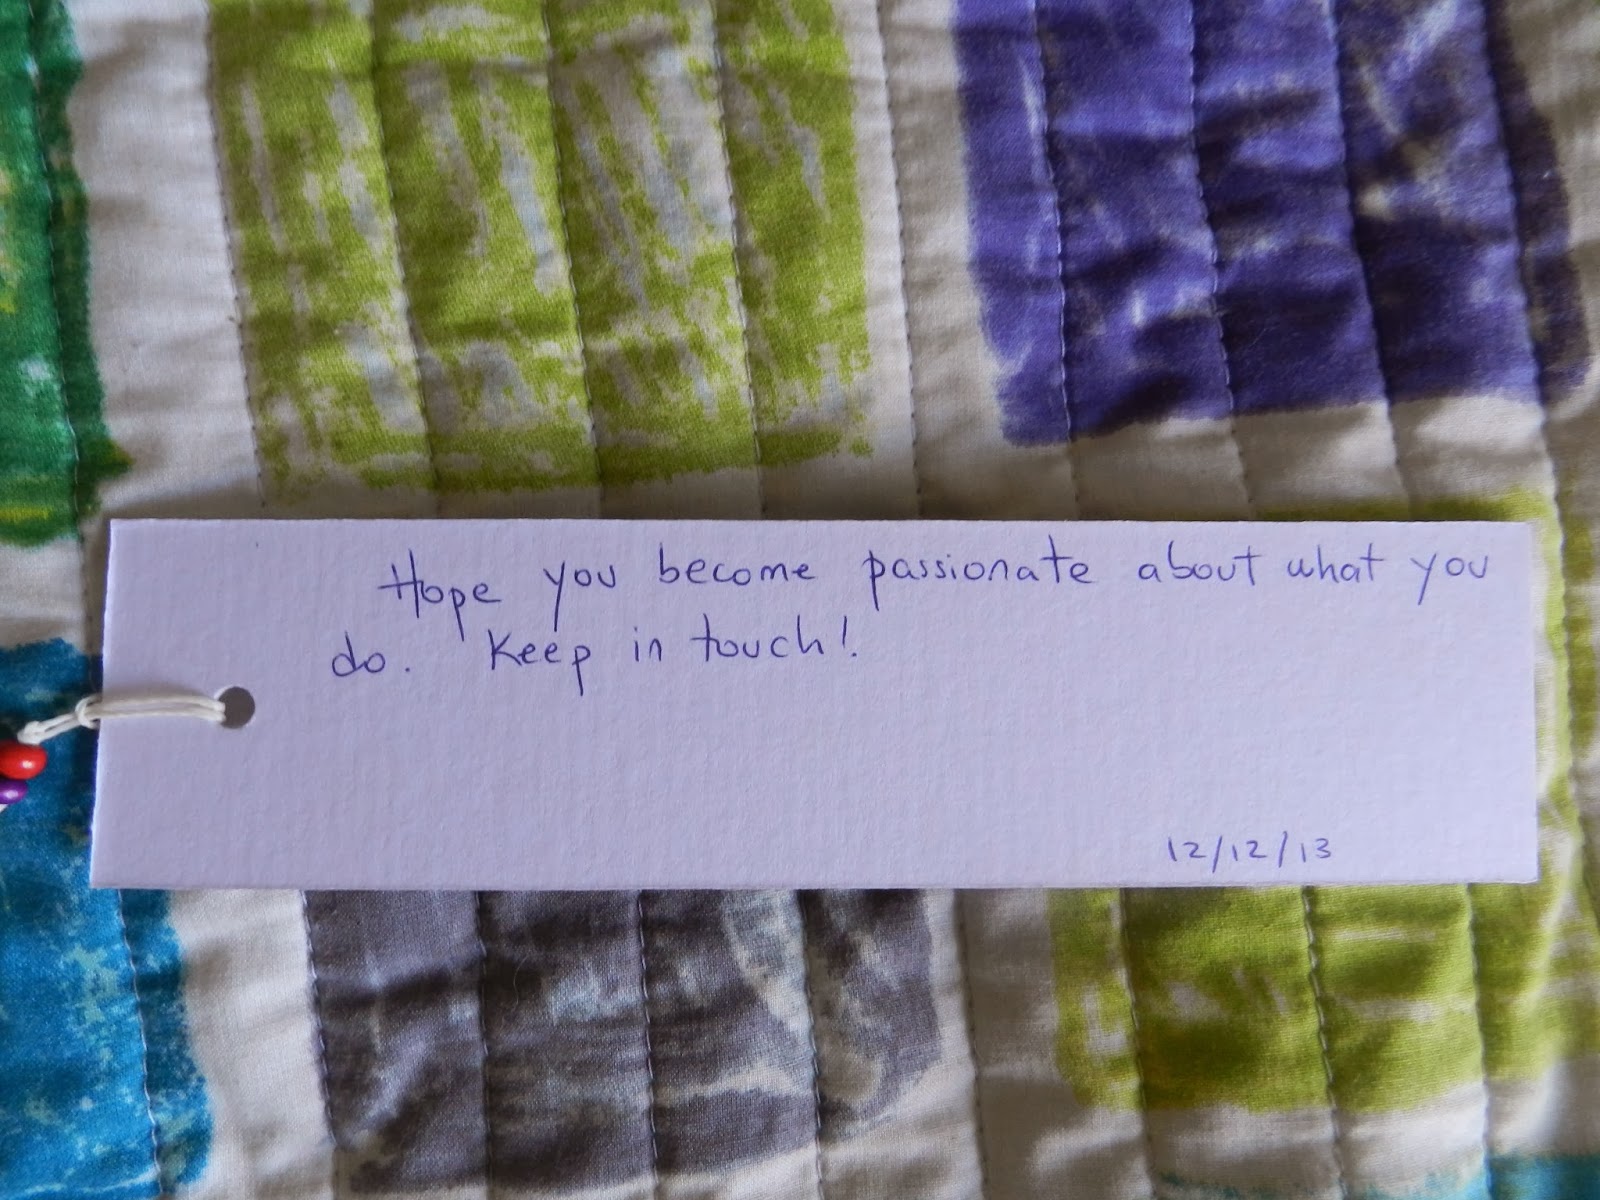 Hope you become passionate about what you
do. Keep in touch!
12/12/13